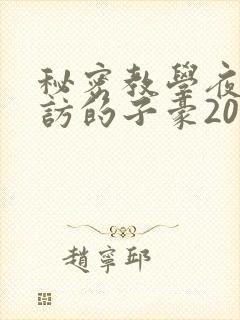 秘密教學夜
訪的子豪20
趙寧邱